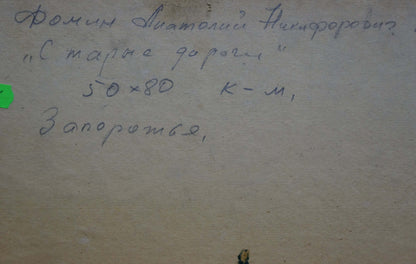 Фомин Анатолий Никифорович
„Старые дороги"
50×80 к-м,
Запорожья,